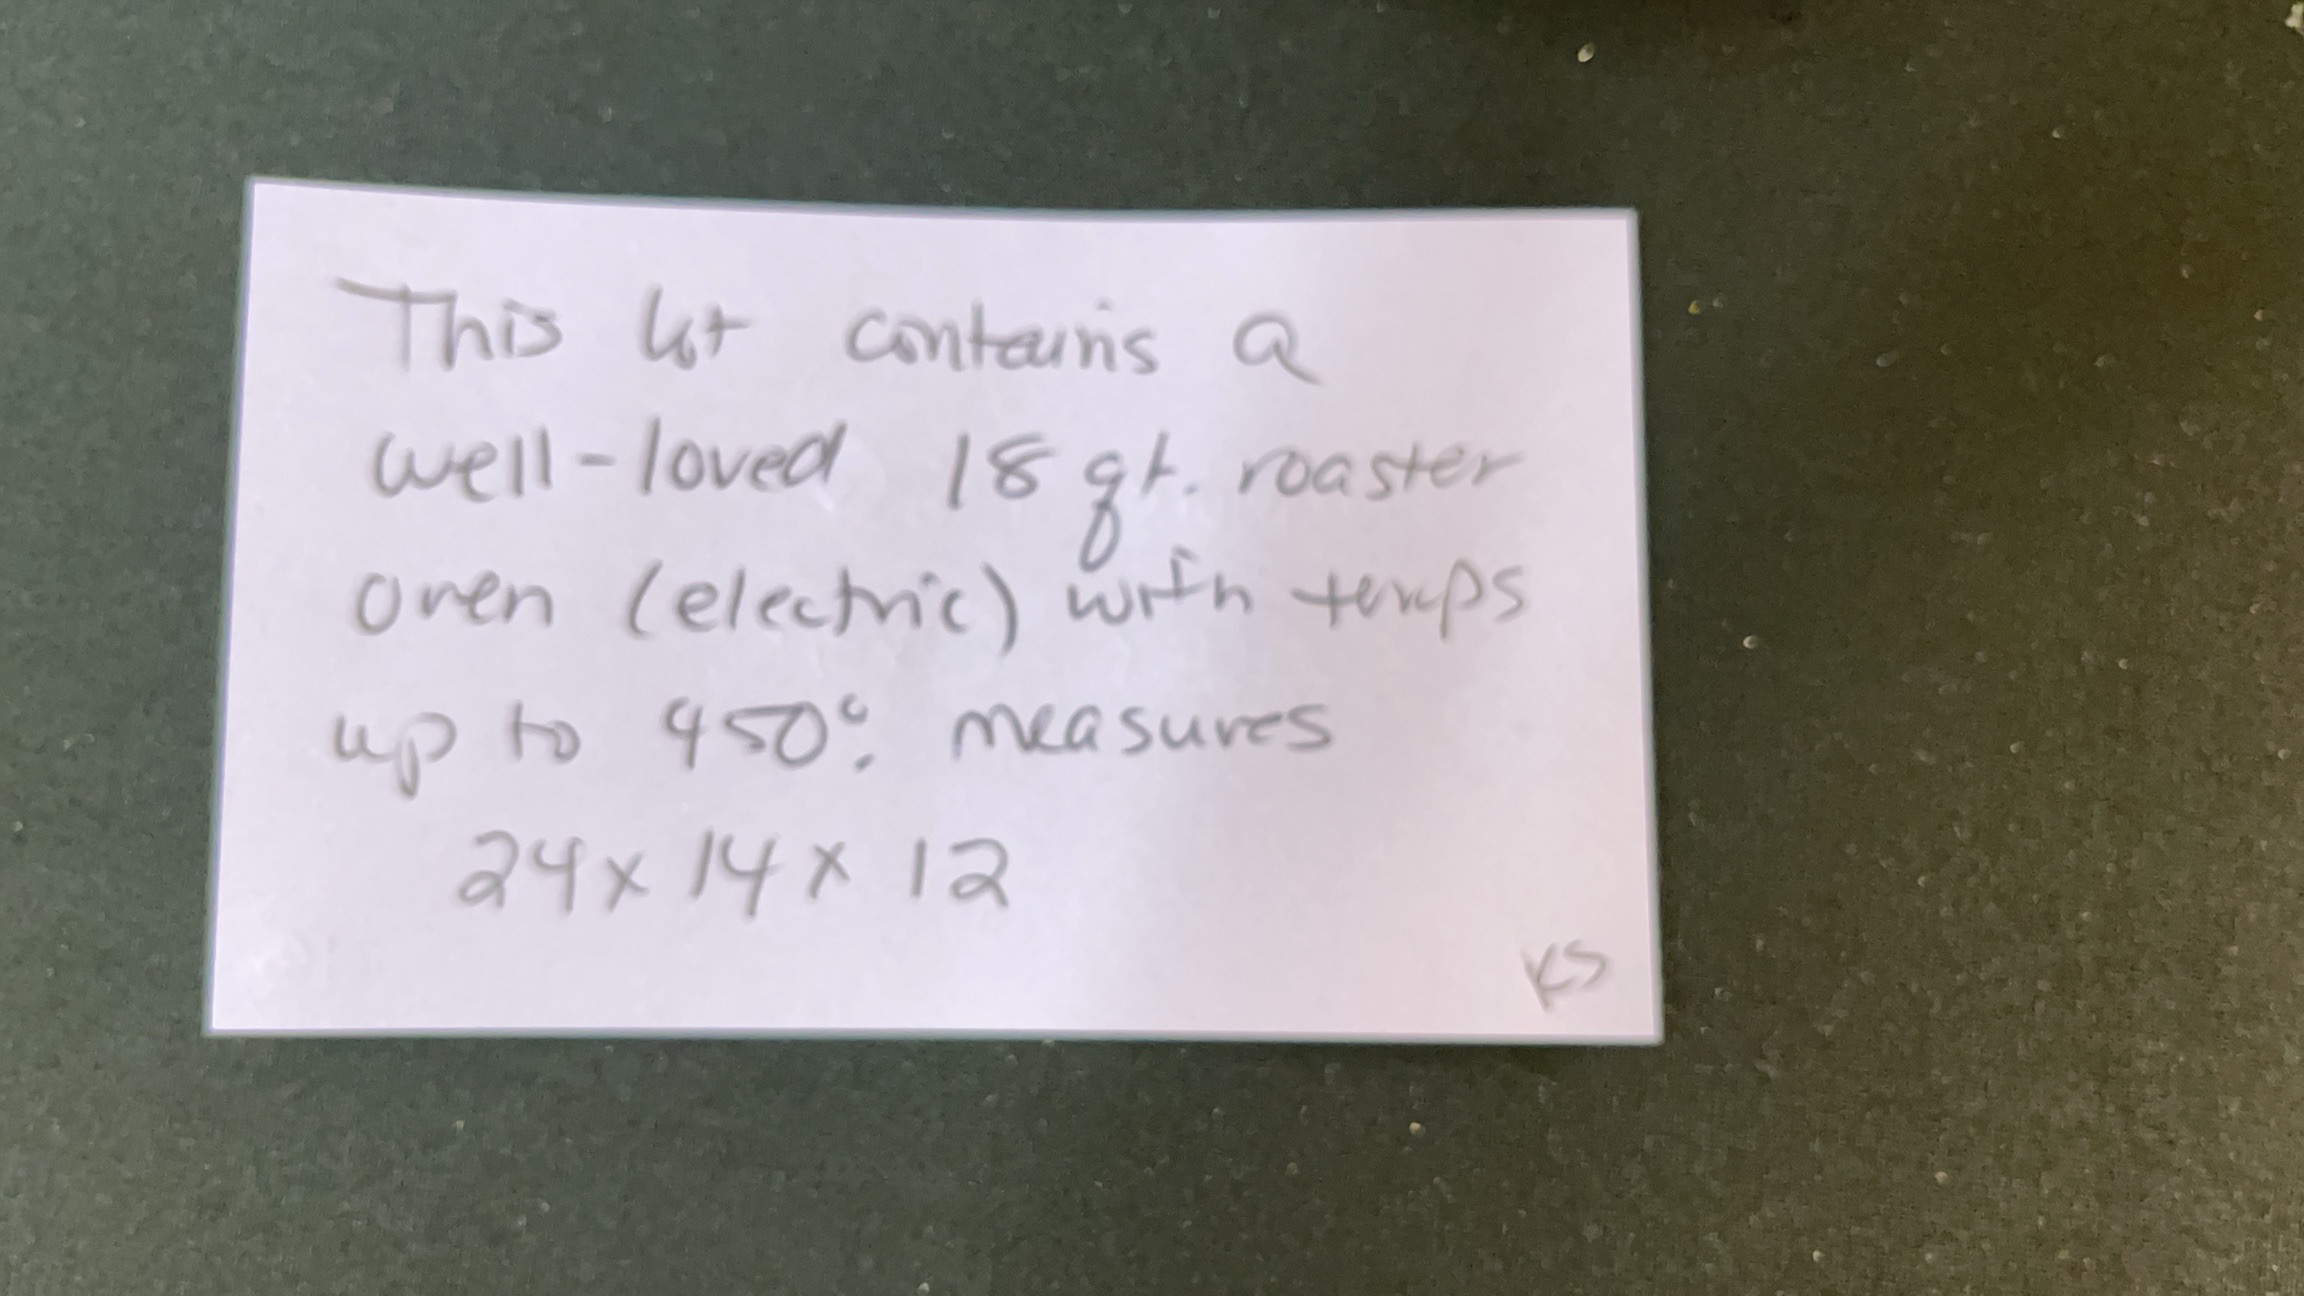 This lot contains a
well-loved 18 qt. roaster
oven (electric) with temps
up to 450°. measures
24x 14 x 12
KS